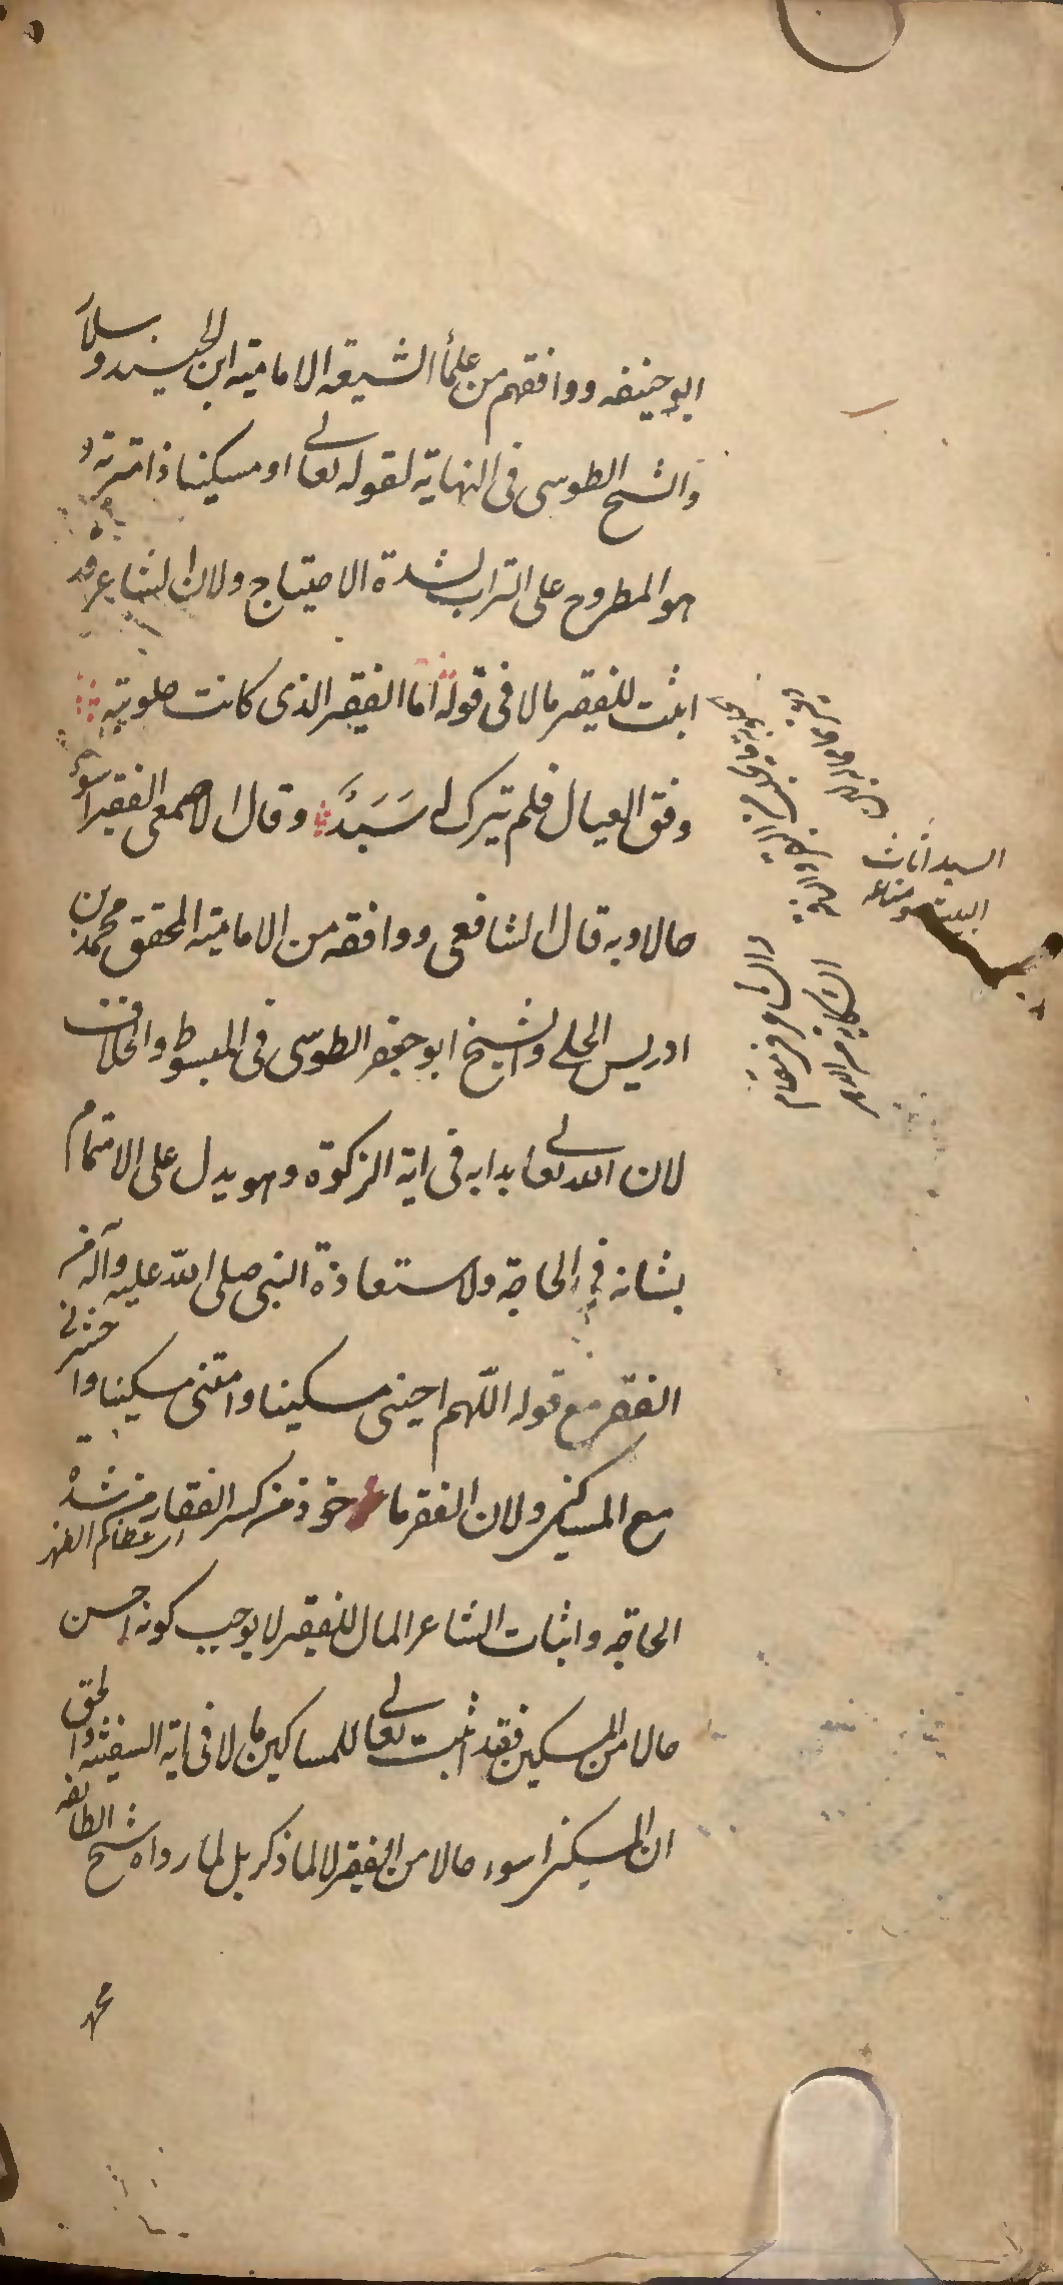 ابو حنيفه ووافقهم من علمأ الشيعه الاماميه ابن الجنيد وسلار
والشيخ الطوسى فى النهاية لقوله تعالى او مسكينا ذا متربة و
هو المطروح على التراب لشدة الاحتياج ولان الشاعر قد
اثبت للفقير مالا فى قوله اما الفقير الذى كانت حلوبته
وفق العيال فلم يترك له سَبَدُ وقال الاصمعى الفقير اسوء
حالا وبه قال الشافعى ووافقه من الاماميه المحقق محمد بن
ادريس الحلى والشيخ ابو جعفر الطوسى فى المبسوط والخلاف
لان الله تعالى بدا به فى اية الزكوة وهو يدل على الاهتمام
بشانه فى الحاجة ولاستعاذة النبى صلى الله عليه وآله من
الفقر مع قوله اللهم احينى مسكينا وامتنى مسكينا واحشرنى
مع المساكين ولان الفقر ماخوذ من كسر الفقار من شدة
اى عظام الظهر
الحاجة واثبات الشاعر المال للفقير لا يوجب كونه احسن
حالا من المسكين فقد اثبت تعالى للمساكين مالا فى اية السفينة والحق
ان المسكين اسوء حالا من الفقير لا لما ذكر بل لما رواه شيخ الطائفه
محمد
السبد اثاث
البيت ومتاعه
والشاعر فى مقام
الشكاية من الدهر